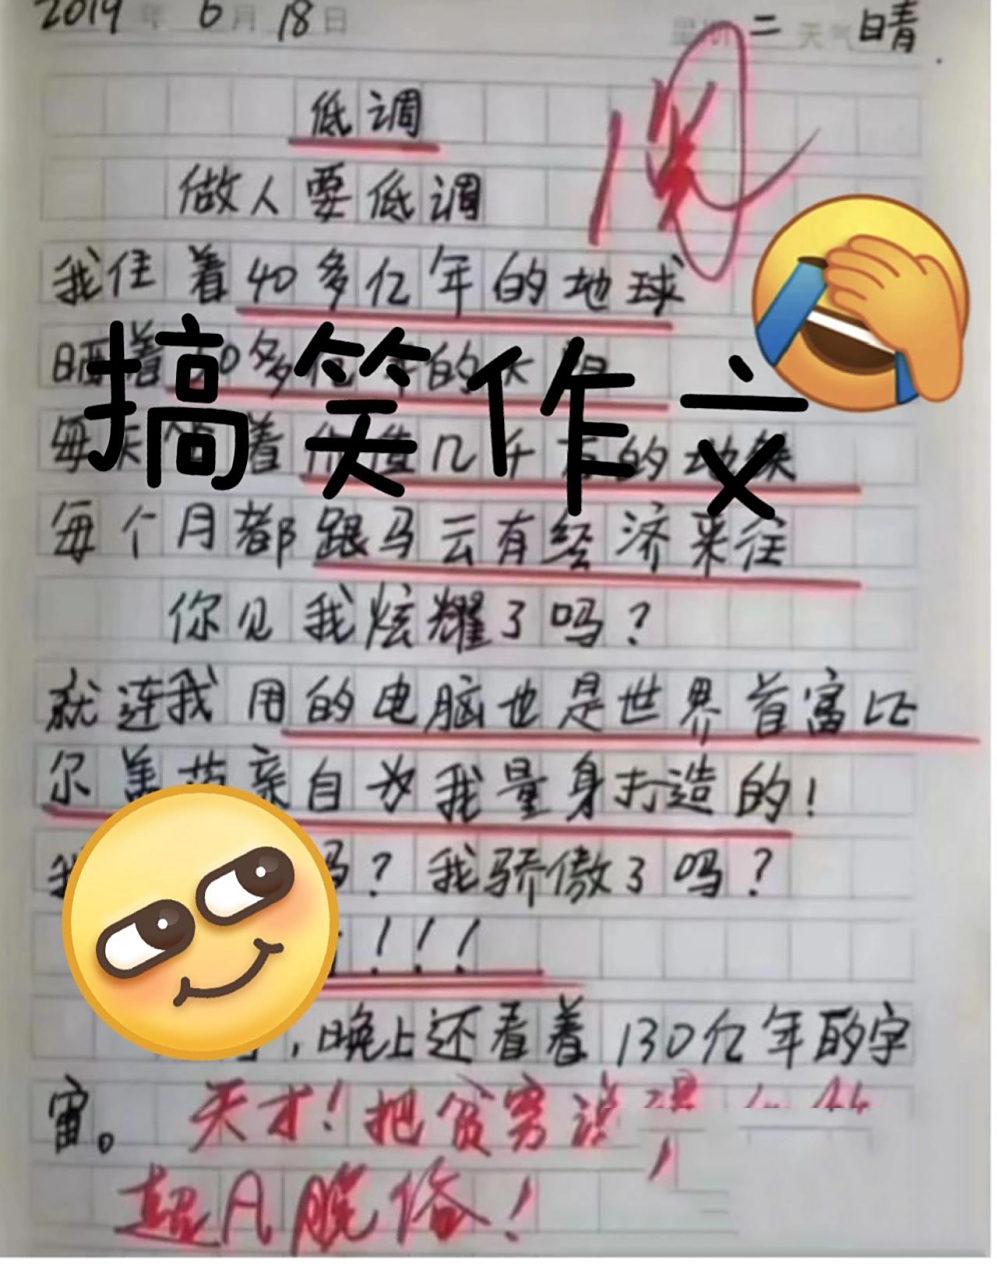 2019年6月18日 星期二 天气晴
低调
做人要低调
我住着40多亿年的地球
晒着 0多 年的
搞笑作文
每 着 价值几千 的
每个月都跟马云有经济来往
你见我炫耀了吗?
就连我用的电脑也是世界首富比
尔盖茨亲自为我量身打造的!
我 吗?我骄傲了吗?
!!!
,晚上还看着130亿年的宇
宙。 天才!把贫穷说
超凡脱俗!